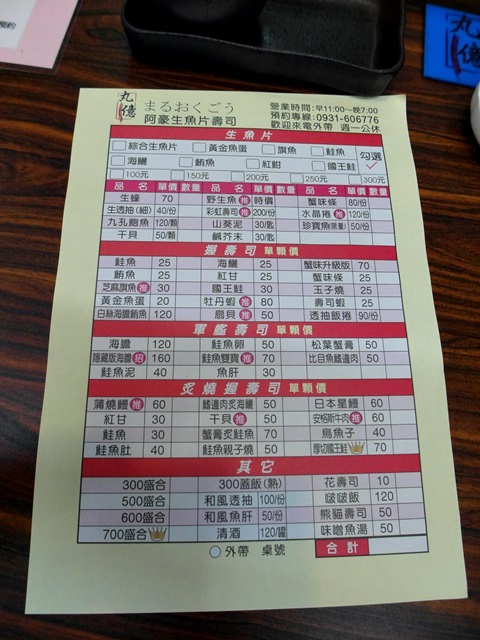 預約
丸億
まるおくごう
阿豪生魚片壽司
營業時間:早11:00~晚7:00
預約專線:0931-606776
歡迎來電外帶 週一公休
生魚片
綜合生魚片 黃金魚蛋 旗魚 鮭魚 勾選
海鱺 鮪魚 紅魽 國王鮭
100元 150元 200元 250元 300元
品名 單價 數量 品名 單價 數量 品名 單價 數量
生蠔 70 野生魚 推 時價 蟹味條 80/份
生透抽(細) 40/份 彩虹壽司 推 200/份 水晶捲 推 120/份
九孔鮑魚 120/顆 山葵泥 30/匙 珍寶魚(限量) 50/份
干貝 50/顆 鹹芥末 30/匙
握壽司 單顆價
鮭魚 25 海鱺 25 蟹味升級版 70
鮪魚 25 紅甘 25 蟹味條 25
芝麻旗魚 推 30 國王鮭 30 玉子燒 25
黃金魚蛋 20 牡丹蝦 推 80 壽司蝦 25
白絲海膽鮪魚 120 扇貝 推 50 透抽飯捲 90/份
軍艦壽司 單顆價
海膽 120 鮭魚卵 50 松葉蟹膏 50
隱藏版海膽 招 160 鮭魚雙寶 推 70 比目魚鰭邊肉 50
鮭魚泥 40 魚肝 30
炙燒握壽司 單顆價
蒲燒鰻 推 60 鰭邊肉炙海鱺 50 日本星鰻 60
紅甘 30 干貝 推 50 安格斯牛肉 推 60
鮭魚 30 蟹膏炙鮭魚 70 烏魚子 40
鮭魚肚 40 鮭魚親子燒 50 厚切國王鮭 70
其它
300盛合 300蓋飯(熱) 花壽司 10
500盛合 和風透抽 100/份 啵啵飯 120
600盛合 和風魚肝 50/份 熊貓壽司 50
700盛合 清酒 120/罐 味噌魚湯 50
外帶 桌號 合計